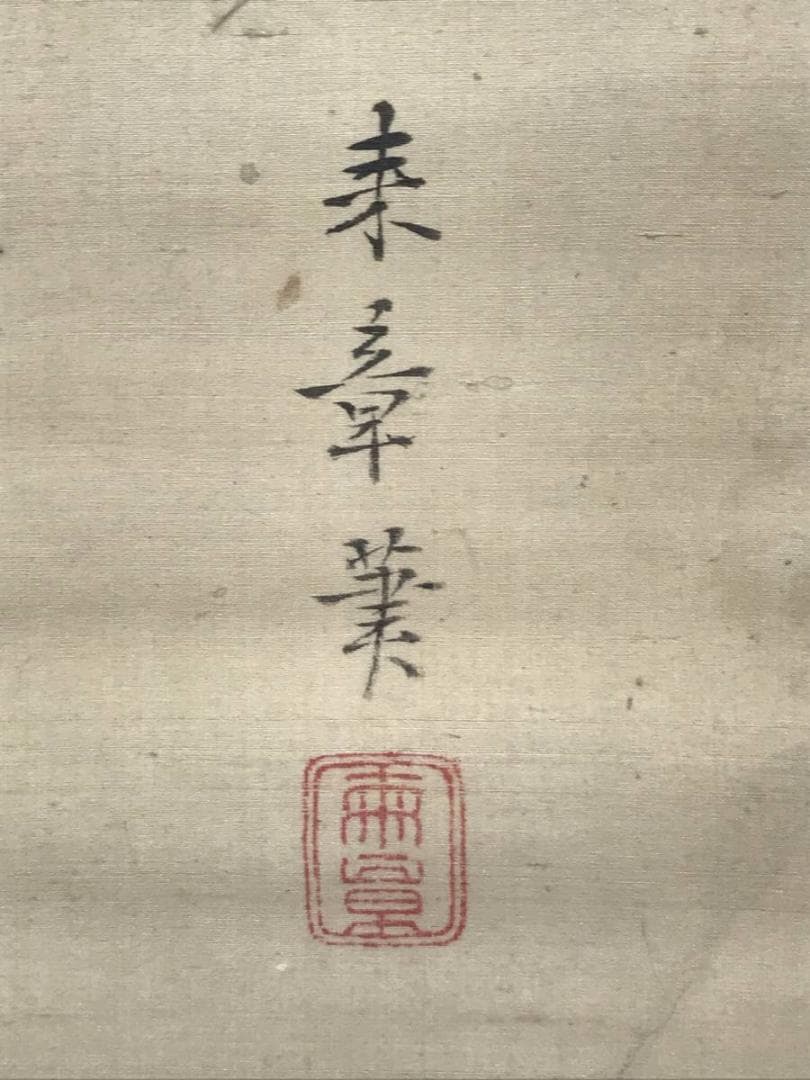 来章筆